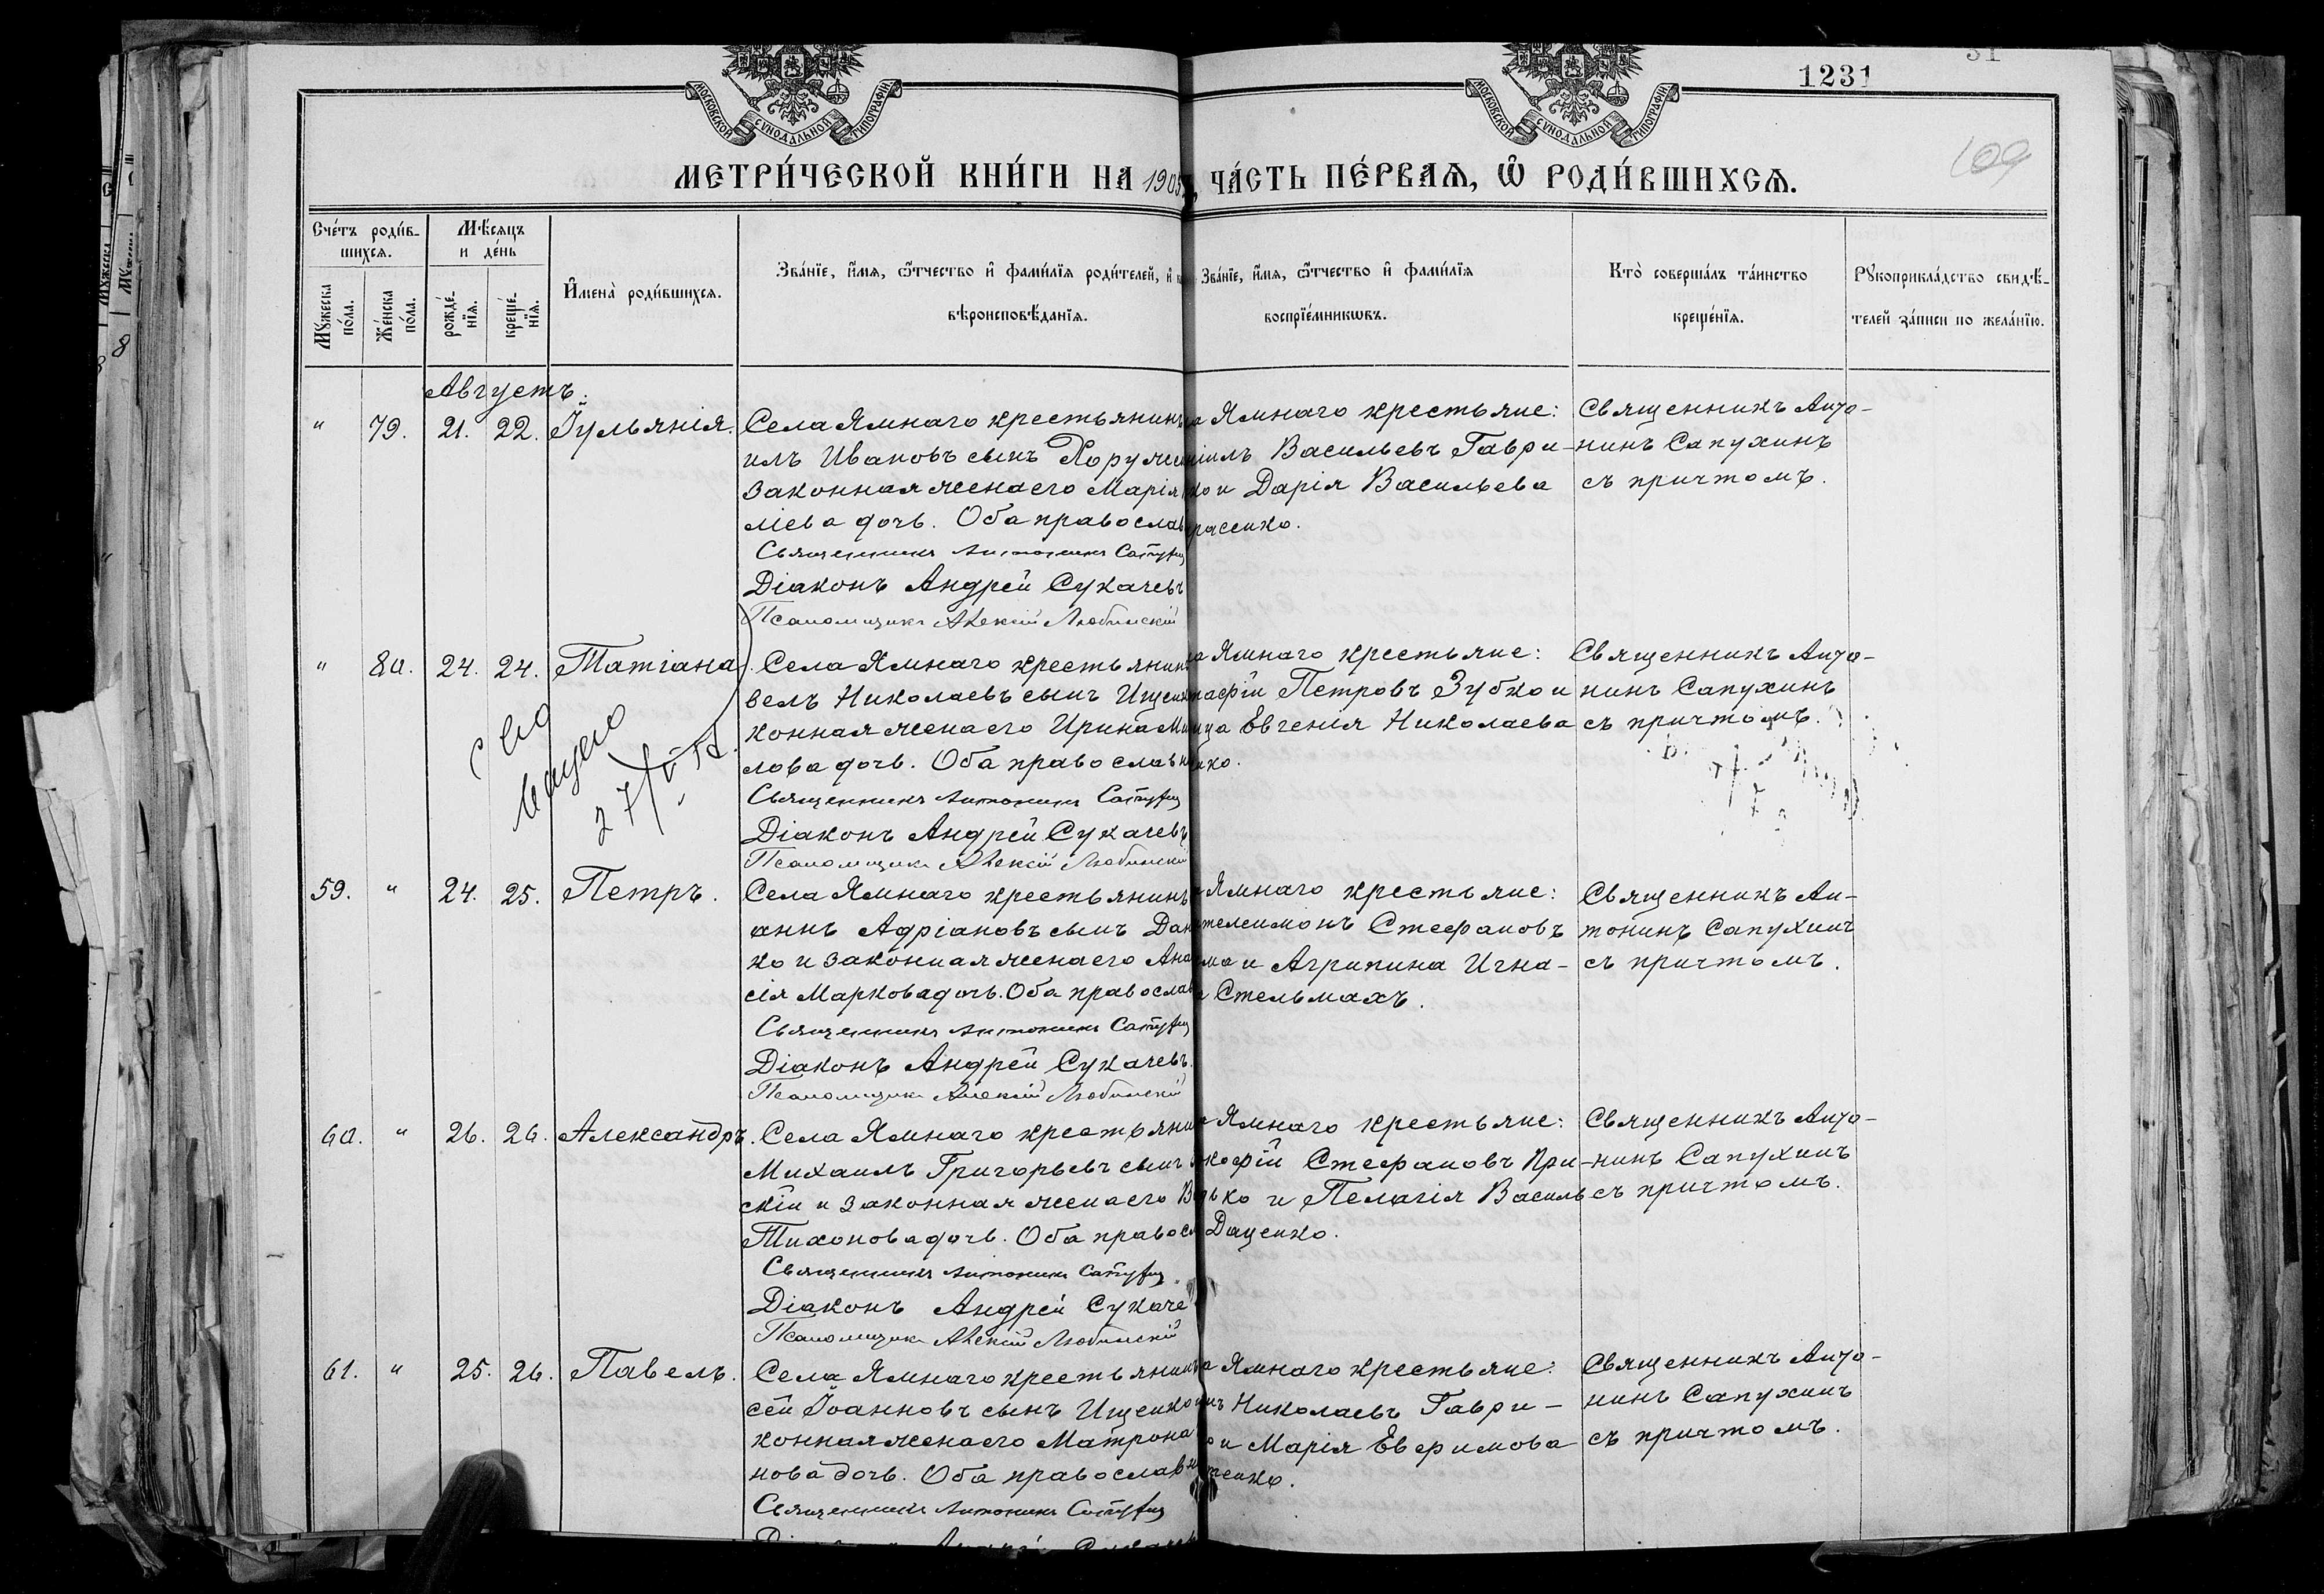 31
1231
109
МОСКОВСКОЙ СѴНОДАЛЬНОЙ ТИПОГРАФІИ
МОСКОВСКОЙ СѴНОДАЛЬНОЙ ТИПОГРАФІИ
МЕТРИ́ЧЕСКОЙ КНИ́ГИ НА 1905, ЧА́СТЬ ПЕ́РВАѦ, Ѡ҆ РОДИ́ВШИХСѦ.
Сче́тъ роди́в-
шихсѧ.
Мѣ́сѧцъ
и де́нь
Мꙋ́жеска по́ла.
Же́нска по́ла.
рожде́-нїѧ.
креще́-нїѧ.
И҆мена̀ роди́вшихсѧ.
Зва́нїе, и҆́мѧ, ѻ҆́тчество и҆ фами́лїѧ роди́телей, и҆
вѣроисповѣ́данїѧ.
Зва́нїе, и҆́мѧ, ѻ҆́тчество и҆ фами́лїѧ
воспрїе́мникѡвъ.
Кто̀ соверша́лъ та́инство
креще́нїѧ.
Рꙋкоприкла́дство свидѣ́-
телей за́писи по жела́нїю.
Августъ.
" 79. 21. 22. Іульянія.
Села Ямнаго крестьянинъ
илъ Ивановъ сынъ Хоруж
законная жена его Марія
ліева дочь. Оба православ
Священникъ Антонинъ Сапухин
Діаконъ Андрей Сукачевъ
Псаломщикъ Алексій Любинскій
а Ямнаго крестьяне:
іилъ Васильевъ Гаври-
ко и Дарія Васильева
расенко.
Священникъ Анто-
нинъ Сапухинъ
съ причтомъ.
" 80. 24. 24. Татіана.
27/V
Села Ямнаго крестьянин
велъ Николаевъ сынъ Ищенк
конная жена его Ирина Ми
лова дочь. Оба православн
Священникъ Антонинъ Сапухин
Діаконъ Андрей Сукачевъ
Псаломщикъ Алексій Любинскій
а Ямнаго крестьяне:
афій Петровъ Зубко и
ица Евгенія Николаева
нко.
Священникъ Анто-
нинъ Сапухинъ
съ причтомъ.
59. " 24. 25. Петръ.
Села Ямнаго крестьянинъ
аннъ Адріановъ сынъ Дан
ко и законная жена его Ана
сія Маркова дочь. Оба православ
Священникъ Антонинъ Сапухин
Діаконъ Андрей Сукачевъ.
Псаломщикъ Алексій Любинскій
Ямнаго крестьяне:
телеимонъ Стефановъ
ма и Агрипина Игна-
Стельмахъ.
Священникъ Ан-
тонинъ Сапухинъ
съ причтомъ.
60. " 26. 26. Александръ.
Села Ямнаго крестьянин
Михаилъ Григорьевъ сынъ
скій и законная жена его В
Тихонова дочь. Оба правосл
Священникъ Антонинъ Сапухин
Діаконъ Андрей Сукаче
Псаломщикъ Алексій Любинскій
Ямнаго крестьяне:
кофій Стефановъ При-
дько и Пелагія Василь
Даценко.
Священникъ Анто-
нинъ Сапухинъ
съ причтомъ.
61. " 25. 26. Павелъ.
Села Ямнаго крестьянинъ
сѣй Іоанновъ сынъ Ищенко
конная жена его Матрона
нова дочь. Оба православн
Священникъ Антонинъ Сапухин
а Ямнаго крестьяне:
нъ Николаевъ Гаври-
о и Марія Евфимова
тенко.
Священникъ Анто-
нинъ Сапухинъ
съ причтомъ.